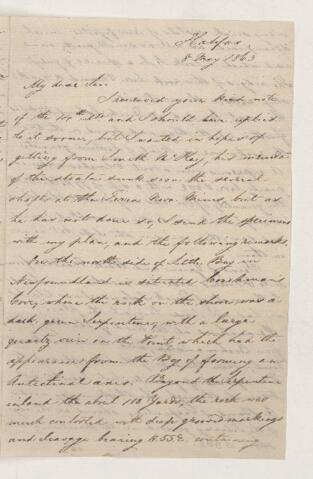 Halifax
8 May 1863
My dear Sir
I received your kind note
of the 14th and I should have replied
to it sooner, but I waited in hopes of
getting from Smith McKay, his records
of the strata sunk upon the several
shafts at the Terra Nova Mines, but as
he has not done so, I send the specimens
with my plan, and the following remarks.
On the north side of Little Bay in
Newfoundland is situated Coachman's
Cove, where the rock on the shore was a
dark, green Serpentine, with a large
quartz vein on the Point, which had the
appearance from the Bay of forming an
Anticlinal axis. Beyond the Serpentine
inland the about 100 Yards, the rock was
much contorted with deep ground markings
and cleavage bearing N.55.E. containing